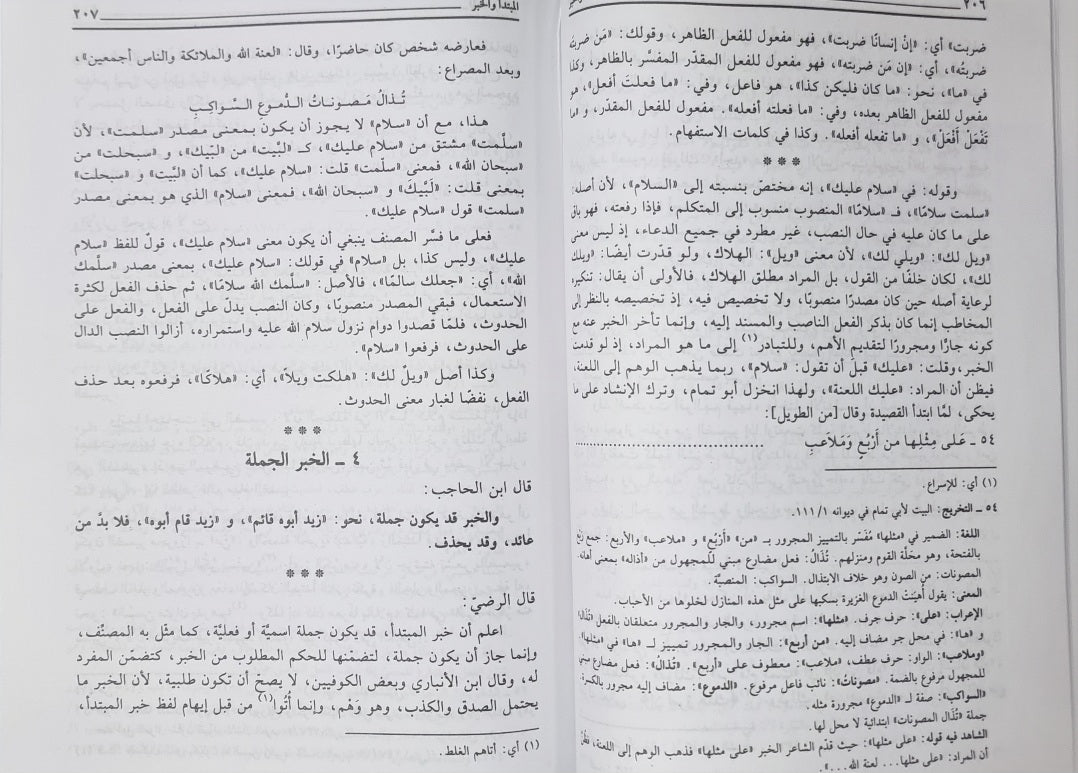 ٢٠٦
ضربت» أي: «إنْ إنسانًا ضربت»، فهو مفعول للفعل الظاهر، وقولك: «مَن ضربتَ
ضربتُه»، أي: «إن مَن ضربته»، فهو مفعول للفعل المقدّر المفسَّر بالظاهر، وكذا
في «ما»، نحو: «ما كان فليكن كذا»، هو فاعل، وفي: «ما فعلتَ أفعل»، هو
مفعول للفعل الظاهر بعده، وفي: «ما فعلته أفعله». مفعول للفعل المقدّر، و «ما
تَفْعَلْ أَفْعَلْ»، و «ما تفعله أفعله». وكذا في كلمات الاستفهام.
***
وقوله: في «سلام عليك»، إنه مختصّ بنسبته إلى «السلام»، لأن أصله:
«سلمت سلامًا»، فـ «سلامًا» المنصوب منسوب إلى المتكلم، فإذا رفعته، فهو باقٍ
على ما كان عليه في حال النصب، غير مطرد في جميع الدعاء، إذ ليس معنى
«ويل لك»: «ويلي لك»، لأن معنى «ويل»: الهلاك، ولو قدرت أيضًا: «ويلك
لك»، لكان خلفًا من القول، بل المراد مطلق الهلاك، فالأولى أن يقال: تنكيره
لرعاية أصله حين كان مصدرًا منصوبًا، ولا تخصيص فيه، إذ تخصيصه بالنظر إلى
المخاطب إنما كان بذكر الفعل الناصب والمسند إليه، وإنما تأخر الخبر عنه مع
كونه جارًا ومجرورًا لتقديم الأهم، وللتبادر(١) إلى ما هو المراد، إذ لو قدمت
الخبر، وقلت: «عليك» قبل أن تقول: «سلام»، ربما يذهب الوهم إلى اللعنة،
فيظن أن المراد: «عليك اللعنة»، ولهذا انخزل أبو تمام، وترك الإنشاد على ما
يحكى، لمَّا ابتدأ القصيدة وقال [من الطويل]:
٥٤ ـ عَلى مِثْلِها من أَرْبُعٍ وَمَلاَعبِ ..............................
(١) أي: للإسراع.
٥٤ ـ التخريج: البيت لأبي تمام في ديوانه ١/ ١١١.
اللغة: الضمير في «مثلها» مُفَسَّر بالتمييز المجرور بـ «من» «أَرْبُعٍ» و «ملاعب» والأربع: جمع رَبْع
بالفتحة، وهو محلّة القوم ومنزلهم. تُذَالُ: فعل مضارع مبني للمجهول من «أذاله» بمعنى أهانه.
المصونات: من الصون وهو خلاف الابتذال. السواكب: المنصبّة.
المعنى: يقول أُهِينَتْ الدموع الغزيرة بسكبها على مثل هذه المنازل لخلوها من الأحباب.
الإعراب: «على»: حرف جرف. «مثلها»: اسم مجرور، والجار والمجرور متعلقان بالفعل «تُذَالُ»
و «ها»: في محل جر مضاف إليه. «من أربع»: الجار والمجرور تمييز لـ «ها» في «مثلها».
«وملاعب»: الواو: حرف عطف، «ملاعب»: معطوف على «أربع». «تُذَالُ»: فعل مضارع مبني
للمجهول مرفوع بالضمة. «مصونات»: نائب فاعل مرفوع. «الدموع»: مضاف إليه مجرور بالكسرة.
«السواكب»: صفة لـ «الدموع» مجرورة مثله.
جملة «تُذَال المصونات» ابتدائية لا محل لها.
الشاهد فيه قوله: «على مثلها»: حيث قدّم الشاعر الخبر «على مثلها» فذهب الوهم إلى اللعنة، فظُنَّ
أن المراد: «على مثلها... لعنة الله...».
المبتدأ والخبر ٢٠٧
فعارضه شخص كان حاضرًا، وقال: «لعنة الله والملائكة والناس أجمعين»،
وبعد المصراع:
تُذالُ مَصُوناتُ الدُّموعِ السَّواكِبِ
هذا، مع أن «سلام» لا يجوز أن يكون بمعنى مصدر «سلمت»، لأن
«سلّمت» مشتق من «سلام عليك»، كـ «لبَّيت» من «لبّيك»، و «سبحلت» من
«سبحان الله»، فمعنى «سلّمت» قلت: «سلام عليك»، كما أن «لبَّيت» و «سبحلت»
بمعنى قلت: «لبَّيكَ» و «سبحان الله»، فمعنى «سلام» الذي هو بمعنى مصدر
«سلمت» قول «سلام عليك».
فعلى ما فسَّر المصنف ينبغي أن يكون معنى «سلام عليك»، قولٌ للفظ «سلام
عليك»، وليس كذا، بل «سلام» في قولك: «سلام عليك»، بمعنى مصدر «سلّمك
الله»، أي: «جعلك سالمًا»، فالأصل: «سلّمك الله سلامًا»، ثم حذف الفعل لكثرة
الاستعمال، فبقي المصدر منصوبًا، وكان النصب يدلّ على الفعل، والفعل على
الحدوث، فلمّا قصدوا دوام نزول سلام الله عليه واستمراره، أزالوا النصب الدال
على الحدوث، فرفعوا «سلام».
وكذا أصل «ويلٌ لك»: «هلكت ويلاً»، أي: «هلاكًا»، فرفعوه بعد حذف
الفعل، نفضًا لغبار معنى الحدوث.
***
٤ ـ الخبر الجملة
قال ابن الحاجب:
والخبر قد يكون جملة، نحو: «زيد أبوه قائم»، و «زيد قام أبوه»، فلا بدّ من
عائد، وقد يحذف.
***
قال الرضيّ:
اعلم أن خبر المبتدأ، قد يكون جملة اسميّة أو فعليَّة، كما مثّل به المصنّف،
وإنما جاز أن يكون جملة، لتضمنّها للحكم المطلوب من الخبر، كتضمّن المفرد
له، وقال ابن الأنباري وبعض الكوفيين، لا يصحّ أن تكون طلبية، لأن الخبر ما
يحتمل الصدق والكذب، وهو وَهْم، وإنما أُتُوا(١) من قبل إيهام لفظ خبر المبتدأ،
(١) أي: أتاهم الغلط.